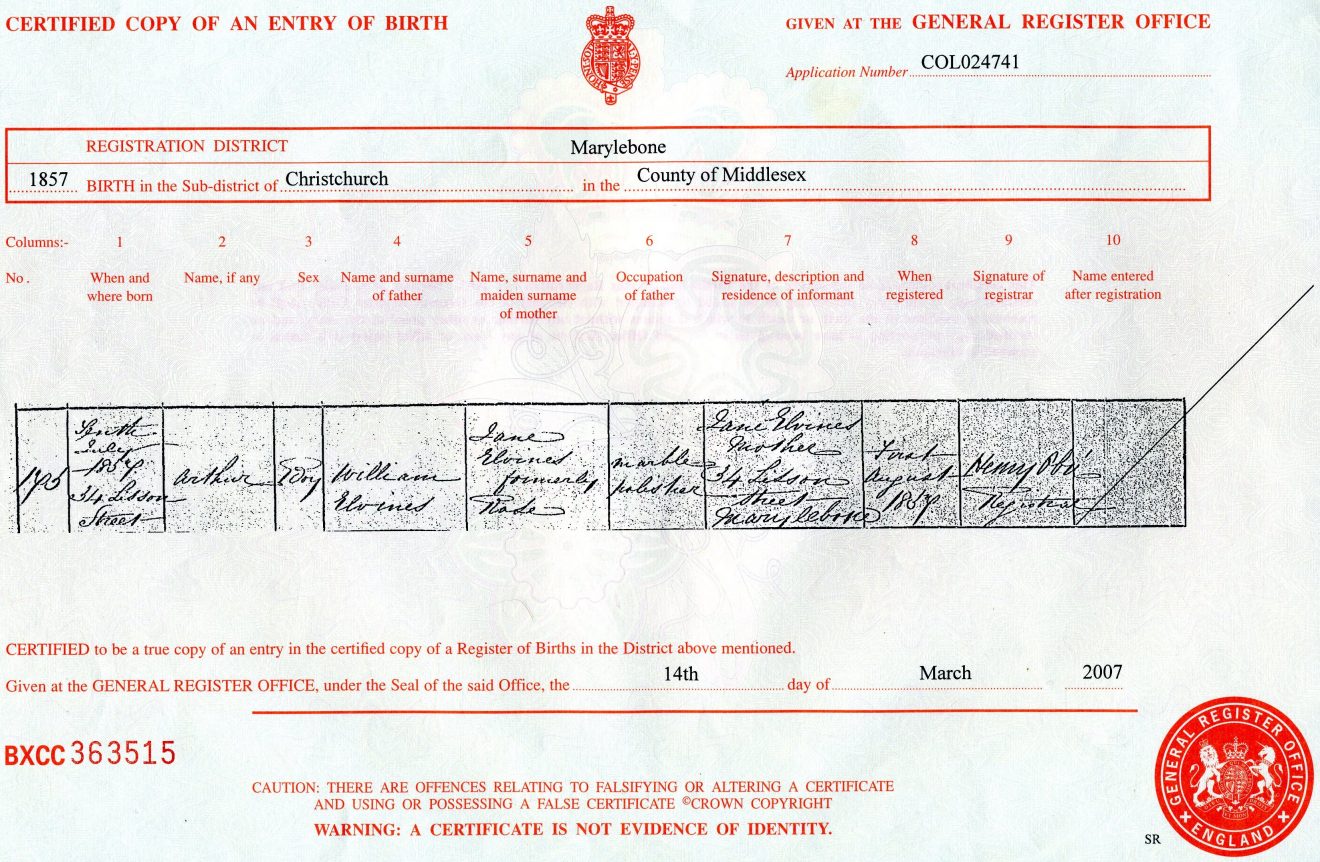 CERTIFIED COPY OF AN ENTRY OF BIRTH
GIVEN AT THE GENERAL REGISTER OFFICE
Application Number COL024741
REGISTRATION DISTRICT Marylebone
1857 BIRTH in the Sub-district of Christchurch in the County of Middlesex
Columns:- 1 2 3 4 5 6 7 8 9 10
No. When and where born
Name, if any
Sex
Name and surname of father
Name, surname and maiden surname of mother
Occupation of father
Signature, description and residence of informant
When registered
Signature of registrar
Name entered after registration
July
1857
34 Lisson
Street
Arthur
Boy
William
Elvines
Jane
Elvines
formerly
marble
polisher
Jane Elvines
Mother
34 Lisson
Street
Marylebone
First
August
1857
Henry
Registrar
CERTIFIED to be a true copy of an entry in the certified copy of a Register of Births in the District above mentioned.
Given at the GENERAL REGISTER OFFICE, under the Seal of the said Office, the 14th day of March 2007
BXCC 363515
CAUTION: THERE ARE OFFENCES RELATING TO FALSIFYING OR ALTERING A CERTIFICATE
AND USING OR POSSESSING A FALSE CERTIFICATE ©CROWN COPYRIGHT
WARNING: A CERTIFICATE IS NOT EVIDENCE OF IDENTITY.
GENERAL REGISTER OFFICE
ENGLAND
SR